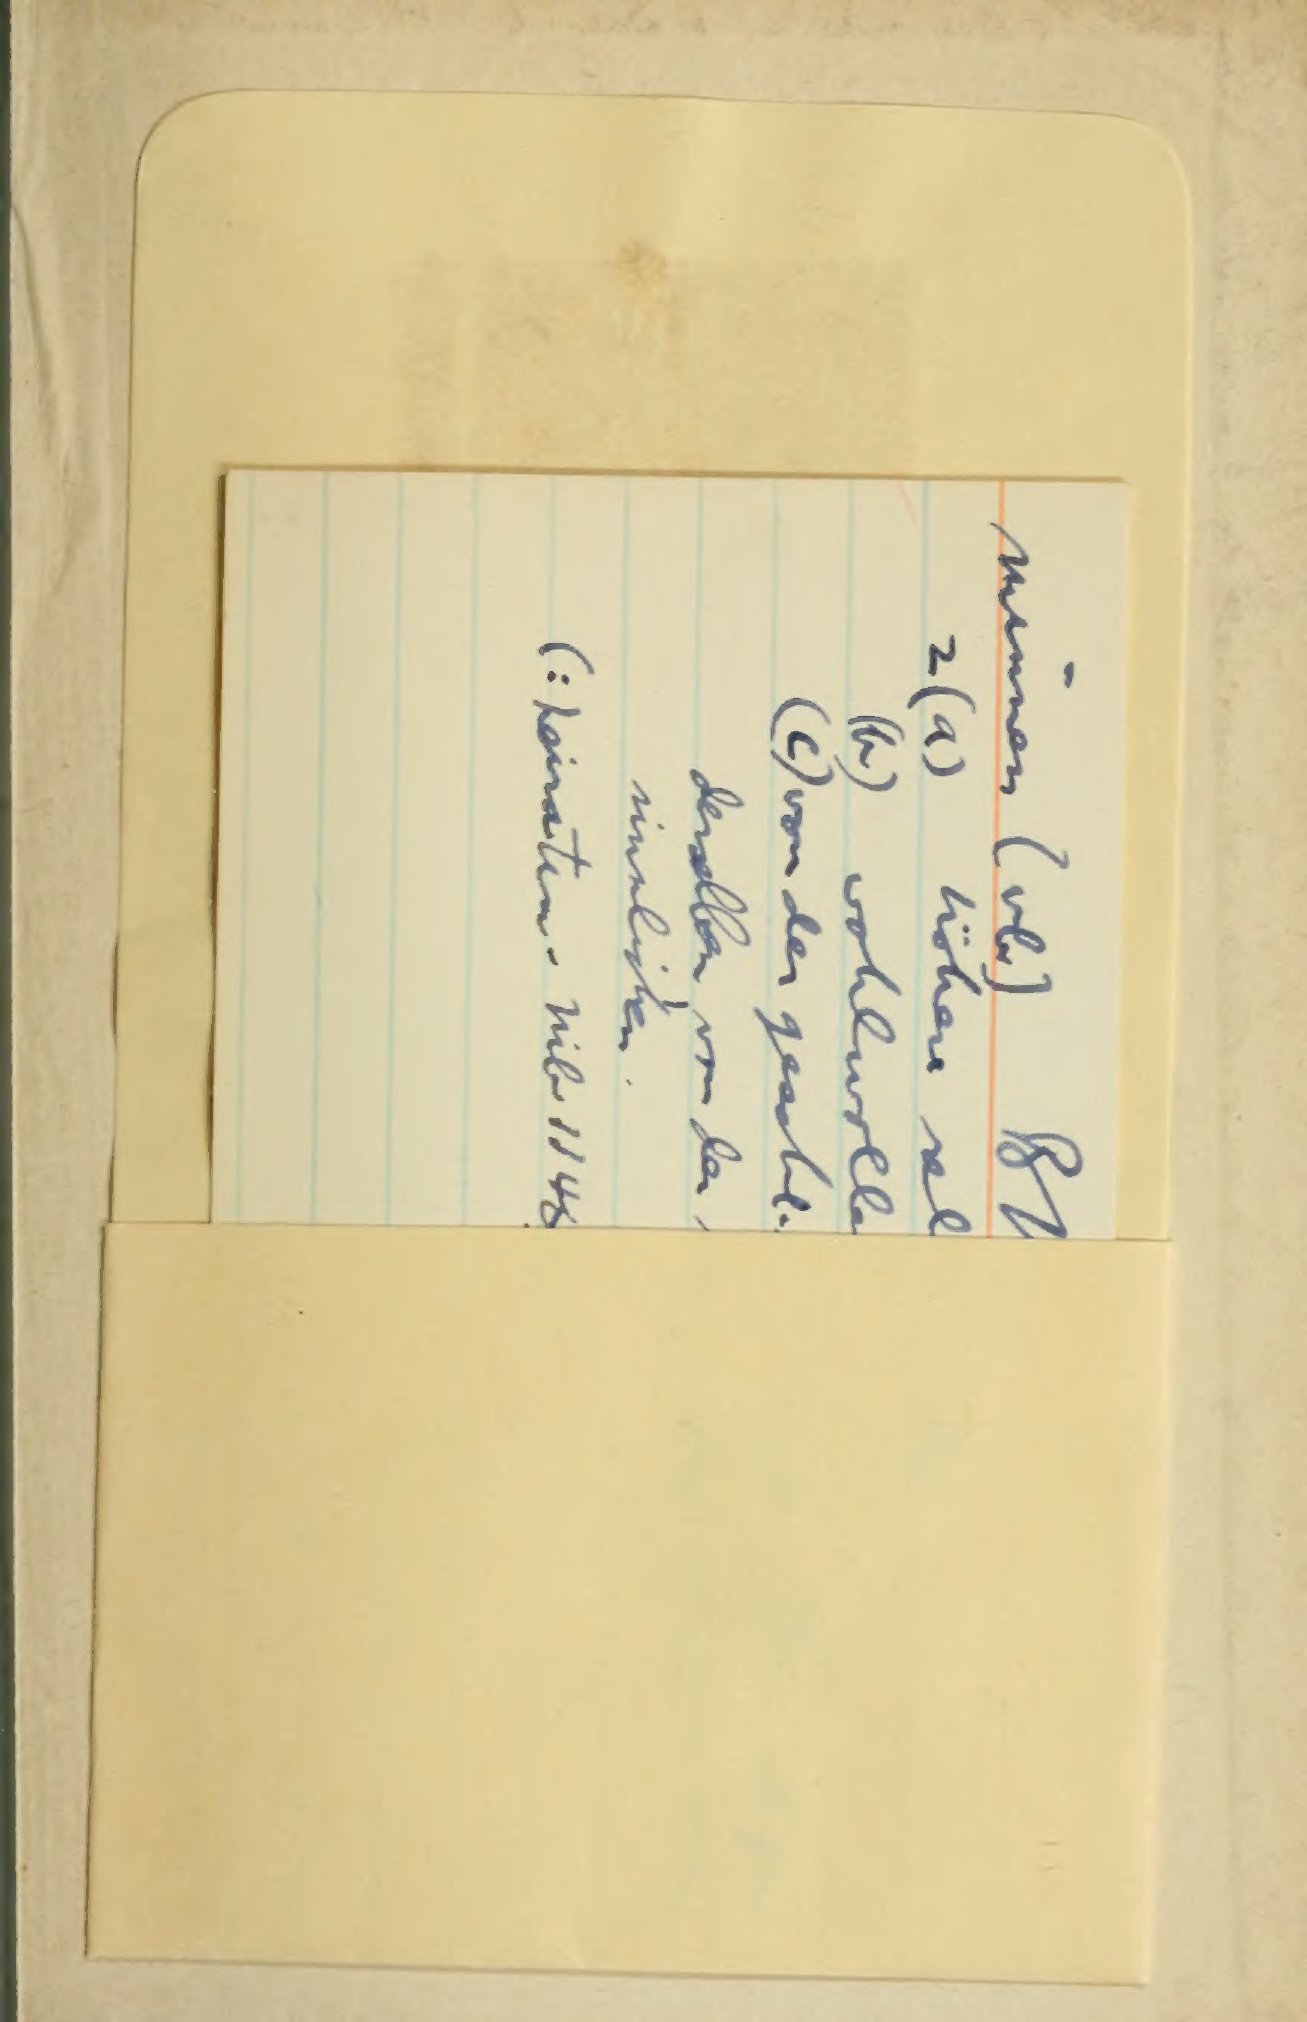 minnen (vb)
2(a) höhere
(b) wohlwolle
(c) von der geschl.
derselben von der
sinnlichen.
(: heiraten. Nib. 1148